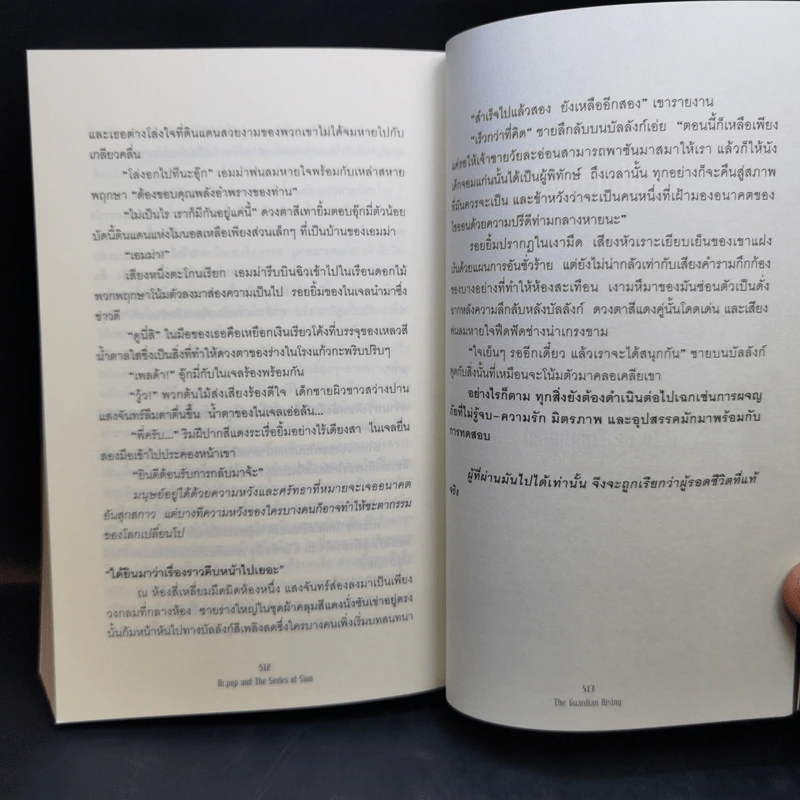 และเธอต่างโล่งใจที่ดินแดนสวยงามของพวกเขาไม่ได้จมหายไปกับ
เกลียวคลื่น
“โล่งอกไปทีนะอุ๊ก” เอมม่าพ่นลมหายใจพร้อมกับเหล่าสหาย
พฤกษา “ต้องขอบคุณพลังอำพรางของท่าน”
“ไม่เป็นไร เราก็มีกันอยู่แค่นี้” ดวงตาสีเทายิ้มตอบอุ๊กมี่ตัวน้อย
บัดนี้ดินแดนแห่งไมนอสเหลือเพียงส่วนเล็กๆ ที่เป็นบ้านของเอมม่า
“เอมม่า!”
เสียงหนึ่งตะโกนเรียก เอมม่ารีบบินฉิวเข้าไปในเรือนดอกไม้
พวกพฤกษาโน้มตัวลงมาส่องความเป็นไป รอยยิ้มของไนเจลนำมาซึ่ง
ข่าวดี
“ดูนี่สิ” ในมือของเธอคือเหยือกเงินเรียวโค้งที่บรรจุของเหลวสี
น้ำตาลใสซึ่งเป็นสิ่งที่ทำให้ดวงตาของร่างในโรงแก้วกะพริบปริบๆ
“เพลด้า!” อุ๊กมี่กับไนเจลร้องพร้อมกัน
“วู้ว!” พวกต้นไม้ส่งเสียงร้องดีใจ เด็กชายผิวขาวสว่างปาน
แสงจันทร์ลืมตาตื่นขึ้น น้ำตาของไนเจลเอ่อล้น...
“พี่ครับ...” ริมฝีปากสีแดงระเรื่อยิ้มอย่างไร้เดียงสา ไนเจลยื่น
สองมือเข้าไปประคองหน้าเขา
“ยินดีต้อนรับการกลับมาจ้ะ”
มนุษย์อยู่ได้ด้วยความหวังและศรัทธาที่หมายจะเจออนาคต
อันสุกสกาว แต่บางทีความหวังของใครบางคนก็อาจทำให้ชะตากรรม
ของโลกเปลี่ยนไป
“ได้ยินมาว่าเรื่องราวคืบหน้าไปเยอะ”
ณ ห้องสี่เหลี่ยมมืดมิดห้องหนึ่ง แสงจันทร์ส่องลงมาเป็นเพียง
วงกลมที่กลางห้อง ชายร่างใหญ่ในชุดผ้าคลุมสีแดงนั่งชันเข่าอยู่ตรง
นั้นก้มหน้าหันไปทางบัลลังก์สีเพลิงลดซึ่งใครบางคนเพิ่งเริ่มบทสนทนา
512
Dr.pop and The Series of Sion
“สำเร็จไปแล้วสอง ยังเหลืออีกสอง” เขารายงาน
“เร็วกว่าที่คิด” ชายลึกลับบนบัลลังก์เอ่ย “ตอนนี้ก็เหลือเพียง
แค่รอให้เจ้าชายวัยละอ่อนสามารถพาซันมาสมาให้เรา แล้วก็ให้นัง
เด็กจอมแก่นนั้นได้เป็นผู้พิทักษ์ ถึงเวลานั้น ทุกอย่างก็จะคืนสู่สภาพ
ที่มันควรจะเป็น และข้าหวังว่าจะเป็นคนหนึ่งที่เฝ้ามองอนาคตของ
ไซออนด้วยความปรีดีท่ามกลางหายนะ”
รอยยิ้มปรากฏในเงามืด เสียงหัวเราะเยียบเย็นของเขาแฝง
เร้นด้วยแผนการอันชั่วร้าย แต่ยังไม่น่ากลัวเท่ากับเสียงคำรามกึกก้อง
ของบางอย่างที่ทำให้ห้องสะเทือน เงามหึมาของมันซ่อนตัวเป็นดั่ง
ฉากหลังความลึกลับหลังบัลลังก์ ดวงตาสีแดงคู่นั้นโดดเด่น และเสียง
พ่นลมหายใจฟืดฟัดช่างน่าเกรงขาม
“ใจเย็นๆ รออีกเดี๋ยว แล้วเราจะได้สนุกกัน” ชายบนบัลลังก์
พูดกับสิ่งนั้นที่เหมือนจะโน้มตัวมาคลอเคลียเขา
อย่างไรก็ตาม ทุกสิ่งยังต้องดำเนินต่อไปเฉกเช่นการผจญ
ภัยที่ไม่รู้จบ-ความรัก มิตรภาพ และอุปสรรคมักมาพร้อมกับ
การทดสอบ
ผู้ที่ผ่านมันไปได้เท่านั้น จึงจะถูกเรียกว่าผู้รอดชีวิตที่แท้
จริง
513
The Guardian Rising